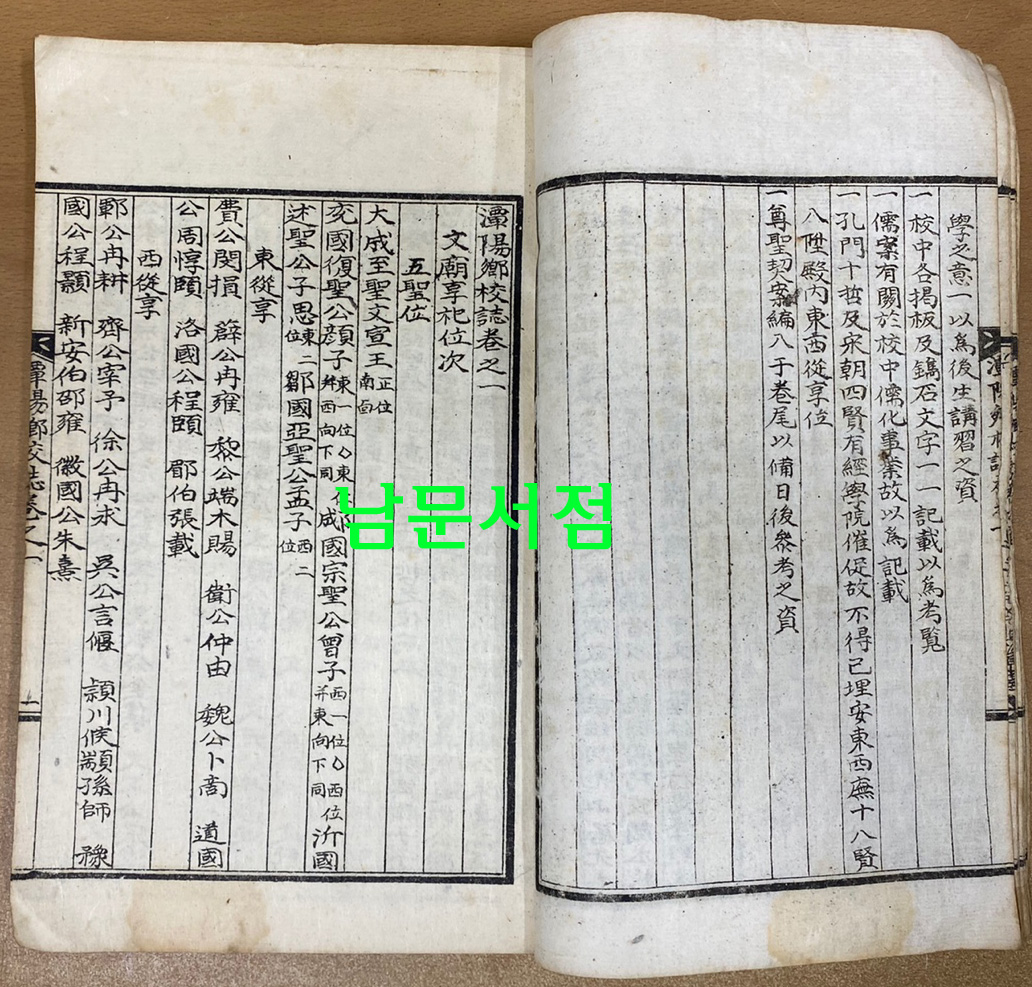 學之意一以爲後生講習之資
一校中各揭板及鐫石文字一一記載以爲考覧
一儒案有關於校中儒化事業故以爲記載
一孔門十哲及宋朝四賢有經學院催促故不得已埋安東西廡十八賢
八陞殿內東西從享位
一尊聖契案編入于卷尾以備日後叅考之資
潭陽鄕校誌卷之一
文廟享祀位次
五聖位
大成至聖文宣王 正位南面
兗國復聖公顔子 東一位 西向下同 郕國宗聖公曾子 西一位 西位并東向下同 沂國
述聖公子思 東二位 鄒國亞聖公孟子 西二位
東從享
費公閔損 薛公冉雍 黎公端木賜 衛公仲由 魏公卜商 道國
公周惇頤 洛國公程頤 郿伯張載
西從享
鄆公冉耕 齊公宰予 徐公冉求 吳公言偃 潁川侯顓孫師 豫
國公程顥 新安伯邵雍 徽國公朱熹
潭陽鄕校誌卷之一
남문서점